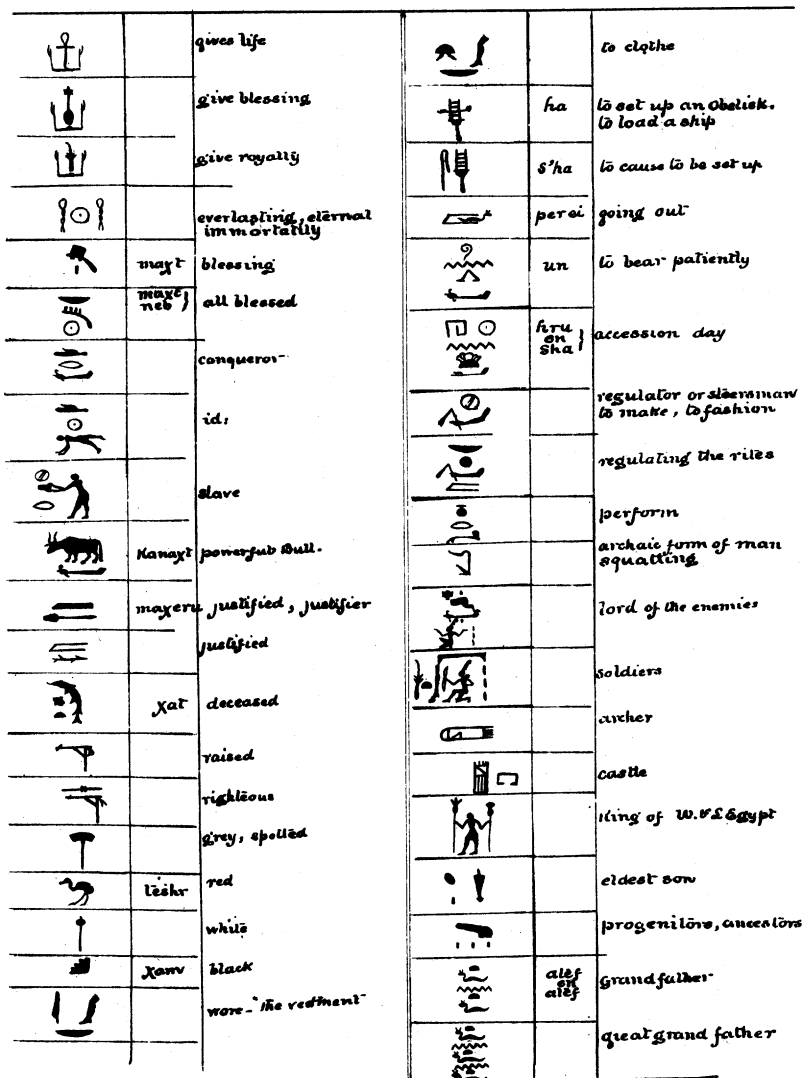 gives life
give blessing
give royalty
everlasting, eternal
immortatily
maχt blessing
maχt
neb } all blessed
conqueror
id:
slave
Kanaχt powerful Bull.
maχeru justified, justifier
justified
χat deceased
raised
righteous
grey, spotted
red
teshr
white
χam black
wore - the vestment
to clothe
ha to set up an Obelisk.
to load a ship
s'ha to cause to be set up
going out
un to bear patiently
hru
en
sha } accession day
regulator or steersman
to make, to fashion
regulating the rites
perform
archaic form of man
squatting
lord of the enemies
soldiers
archer
castle
King of W. & L Egypt
eldest son
progenitors, ancestors
atef
en
atef grandfather
great grand father